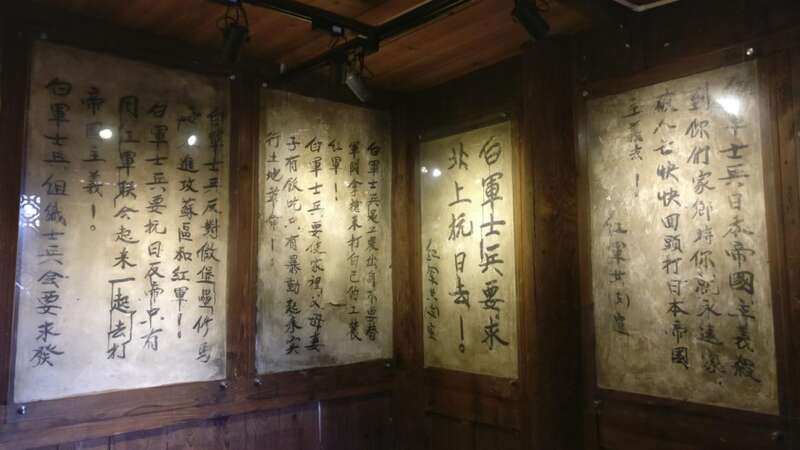 白軍士兵日本帝國主義殺
到你們家鄉時你就永遠家
破人亡快快回頭打日本帝國
主義去！
紅軍宣
白軍士兵要求
北上抗日去！
紅軍宣
白軍士兵是工農出身不要替
軍閥拿槍來打自己的工農
紅軍！
白軍士兵要使家裡父母妻
子有飯吃只有暴動起來实
行土地革命！
白軍士兵反對做堡壘修馬
路進攻蘇區和紅軍！
白軍士兵要抗日反帝只有
同紅軍联合起來一起去打
帝國主義！
白軍士兵組織士兵会要求發